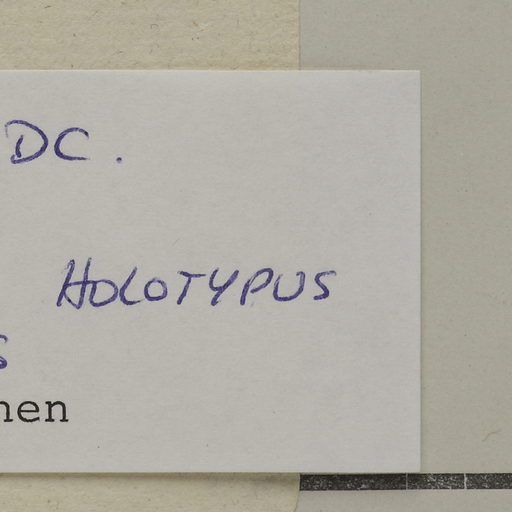 DC.
HOLOTYPUS
s
nen